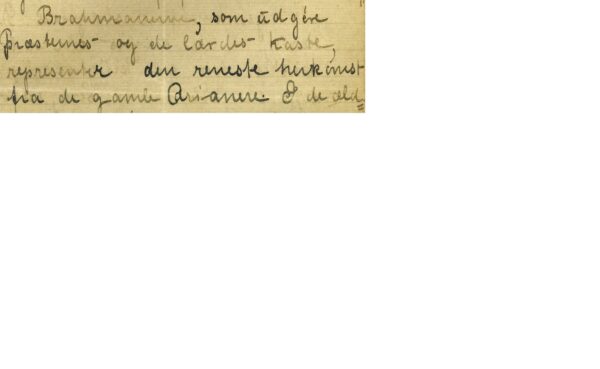 Brahmanerne, som udgøre
Præsternes og de lærdes kaste,
representer den reneste herkomst
fra de gamle Arianere. I de æld=